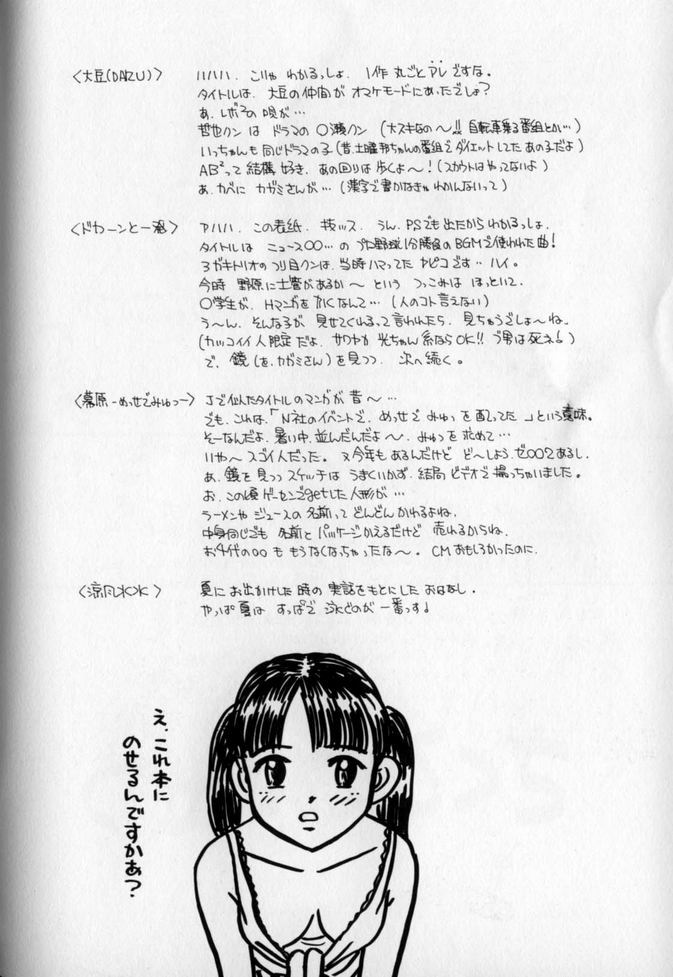 〈大豆(DAIZU)〉
ハハハ. こりゃ わかるっしょ. 1作 丸ごと アレ ですな。
タイトルは、大豆の仲間が オマケモードにあったでしょ?
あ、レボ²の 唄が…
哲也クン は ドラマの ○瀬クン (大スキなの〜!! 自転車乗る番組とか…)
いっちゃんも 同じドラマの子 (昔、土曜邦ちゃんの番組でダイエットしてた あの子だよ)
AB²って 結構 好き. あの回りは 歩くよ〜! (スカウトは やってないよ)
あ、カベに カガミさんが… (漢字で書かなきゃ わかんないって)
〈ドカーンと一発〉
アハハ. この表紙. 技ッス. うん、PSでも出たからわかるっしょ.
タイトルは ニュース○○… の プロ野球1分勝負のBGMで使われた曲!
3ガキトリオの つり目クンは、当時ハマってた ヤピコです‥ ハイ。
今時 野原に土管があるか〜 という つっこみは ほっといて.
○学生が、Hマンガを かくなんて… (人のコト言えない)
う〜ん. そんな子が 見せてくれるって 言われたら. 見ちゃうでしょ〜ね。
(カッコイイ人限定だよ. サワヤカ 光ちゃん系ならOK!! ブ男は死える)
で、鏡(を. カガミさん)を見つつ 次へ続く。
〈幕原-めっせでみゅつー〉
Jで似たタイトルのマンガが 昔〜…
でも、これは、「N社のイベントで、めっせで みゅつを 配ってた」という意味。
そーなんだよ、暑い中、並んだんだよ〜. みゅつを 求めて…
いや〜 スゴイ人だった。 又今年もあるんだけど ど〜しよう. ゼ○○2あるし.
あ、鏡を見つつ スケッチは うまくいかず. 結局 ビデオで撮っちゃいました。
お、この頃 ゲーセンでgetした 人形が…
ラーメンや ジュースの 名前って どんどんかわるよね.
中身同じでも 名前と パッケージかえるだけど 売れるからね.
お4代の○○も もうなくなっちゃったな〜. CMおもしろかったのに.
〈涼風水水〉
夏に お出かけした 時の 実話をもとにした おはなし.
やっぱ 夏は すっぱで 泳ぐのが 一番っす!
え、これ本に
のせるんですかあ?